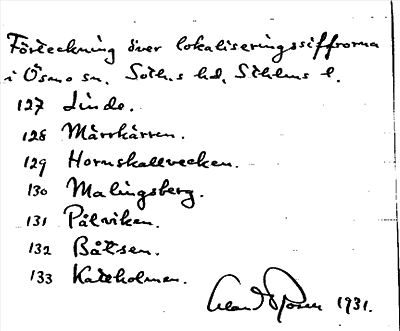 Förteckning över lokaliseringssiffrorna
i Ösmo sn. Soth.s hd. Sthlms l.
127 Linde.
128 Märrkärren.
129 Hornskallvecken.
130 Malingsberg.
131 Pålviken.
132 Båtsen.
133 Kateholmen.
1931.